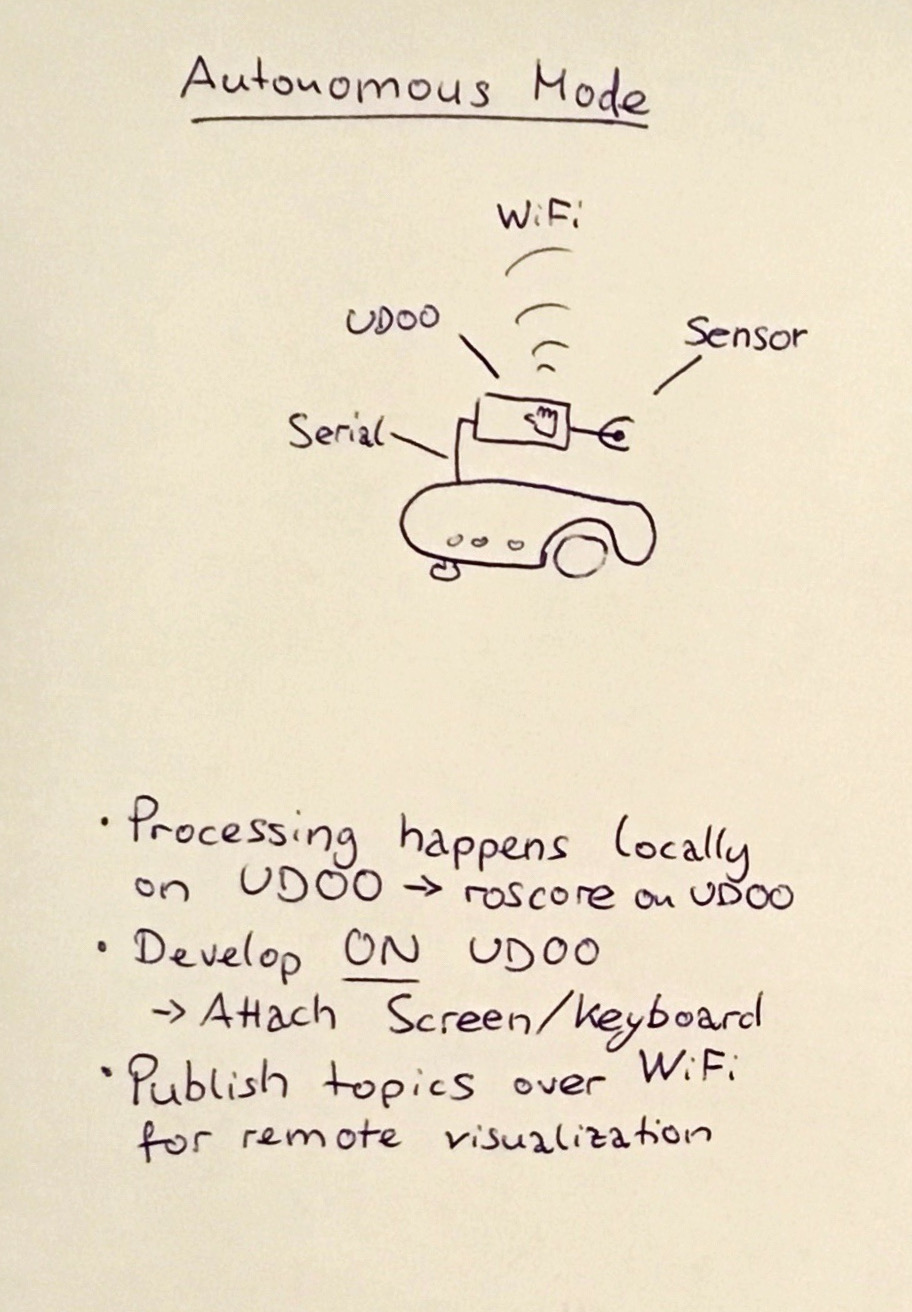 Autonomous Mode
WiFi
UDOO
Sensor
Serial
• Processing happens locally
on UDOO → roscore on UDOO
• Develop ON UDOO
→ Attach Screen/keyboard
• Publish topics over WiFi
for remote visualization